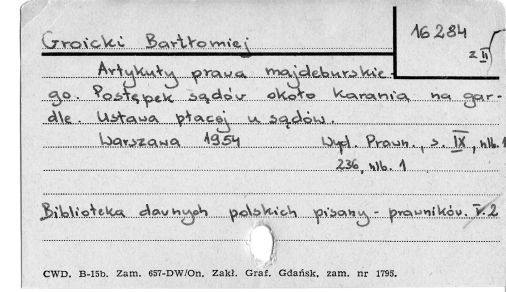 Groicki Bartłomiej
16284
z II
Artykuły prawa majdeburskie-
go. Postępek sądów około karania na gar-
dle. Ustawa płacej u sądów.
Warszawa 1954 Wyd. Prawn., s. IX, nlb. 1
236, nlb. 1
Biblioteka dawnych polskich pisarzy - prawników. T. 2
CWD. B-15b. Zam. 657-DW/On. Zakł. Graf. Gdańsk, zam. nr 1795.